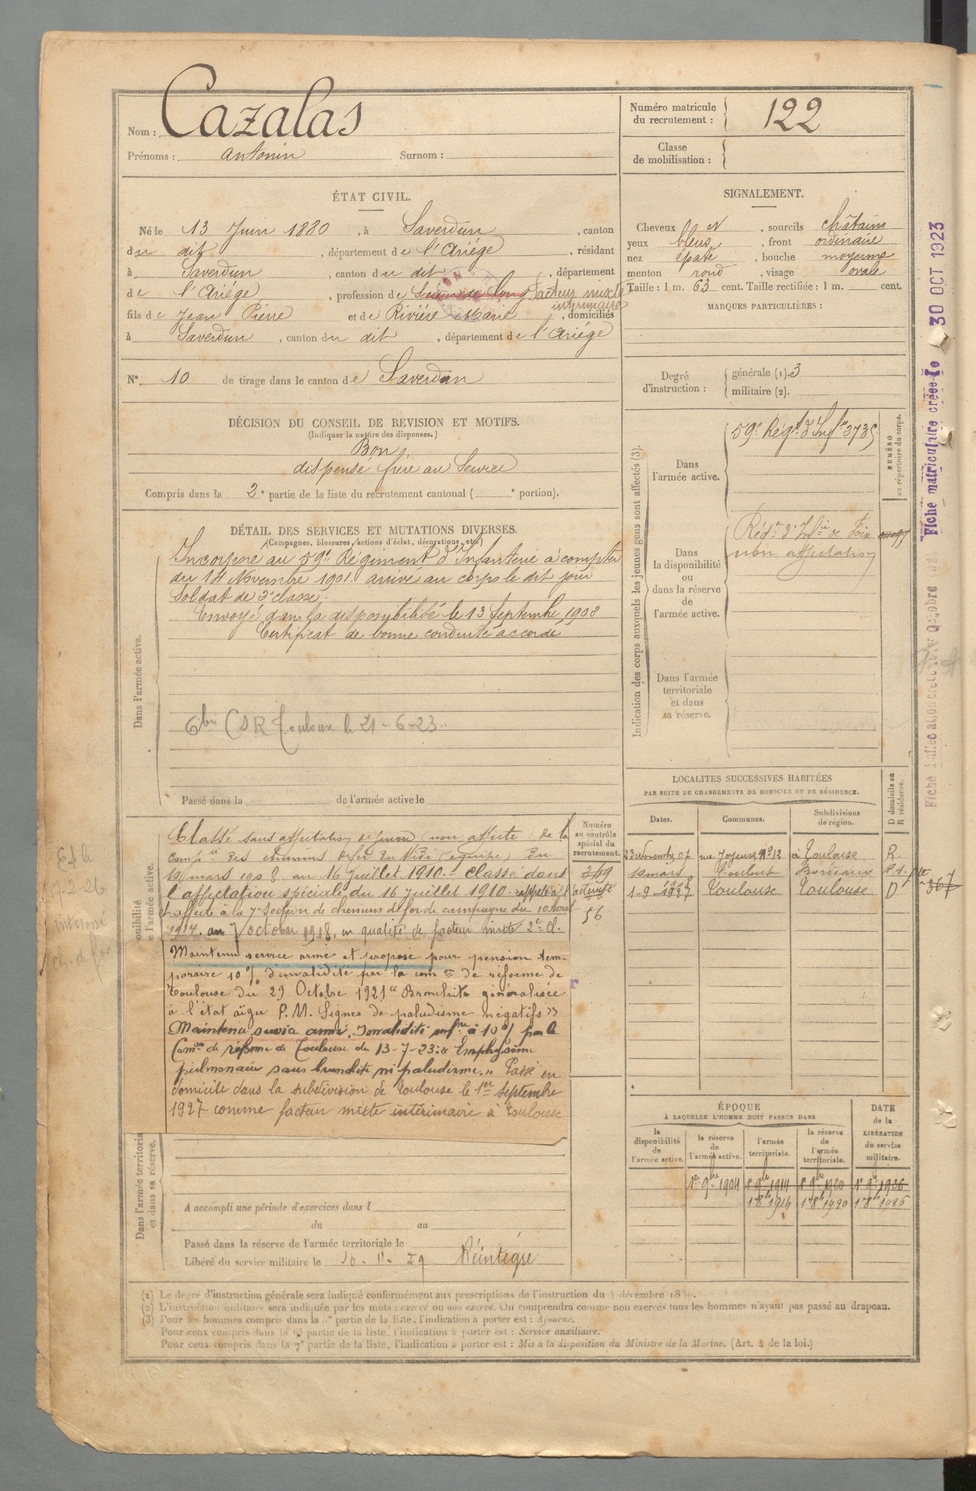 Nom : Cazalas
Prénoms : Antonin Surnom :
Numéro matricule du recrutement : 122
Classe de mobilisation :
ÉTAT CIVIL.
Né le 13 Juin 1880, à Saverdun, canton
du dit, département de l'Ariége, résidant
à Saverdun, canton du dit, département
de l'Ariége, profession de facteur mixte
intérimaire
fils de Jean Pierre et de Rivière Marie, domiciliés
à Saverdun, canton du dit, département de l'Ariége
N° 10 de tirage dans le canton de Saverdun
SIGNALEMENT.
Cheveux et, sourcils châtains
yeux bleus, front ordinaire
nez épaté, bouche moyenne
menton rond, visage ovale
Taille : 1 m. 63 cent. Taille rectifiée : 1 m. cent.
MARQUES PARTICULIÈRES :
Degré d'instruction : générale (1). 3
militaire (2).
DÉCISION DU CONSEIL DE REVISION ET MOTIFS.
(Indiquer la nature des dispenses.)
Bon
dispense frère au Service
Compris dans la 2e partie de la liste du recrutement cantonal ( e portion).
DÉTAIL DES SERVICES ET MUTATIONS DIVERSES.
(Campagnes, blessures, actions d'éclat, décorations, etc.)
Dans l'armée active.
Incorporé au 59e Régiment d'Infanterie à compter
du 14 Novembre 1901. arrivé au corps le dit jour
Soldat de 2e classe.
Envoyé dans la disponibilité le 13 Septembre 1903
Certificat de bonne conduite accordé
CSR Toulouse le 21-6-23
Passé dans la de l'armée active le
Indication des corps auxquels les jeunes gens sont affectés (3).
NUMÉRO au répertoire du corps.
Dans l'armée active.
59e Regt d'Infie 3735
Dans la disponibilité ou dans la réserve de l'armée active.
Régt d'Infie de Foix
non affectation
Dans l'armée territoriale et dans sa réserve.
LOCALITES SUCCESSIVES HABITÉES
PAR SUITE DE CHANGEMENTS DE DOMICILE OU DE RÉSIDENCE.
Dates. Communes. Subdivisions de région. D domicile ou R résidence.
rue Joyeuse N° 12 à Toulouse R.
1-9-1927 Toulouse Toulouse D
Numéro au contrôle spécial du recrutement.
56
Classé sans affectation
19 mars 1908 au 16 Juillet 1910. classé dans
l'affectation spéciale du 16 Juillet 1910.
affecté à la 7e Section de chemins de fer de campagne du 10 Avril
1917. au 7 octobre 1918, en qualité de facteur mixte 2e cl.
Maintenu service armé et proposé pour pension tem-
poraire 10% d'invalidité par la com on de réforme de
Toulouse du 29 Octobre 1921 "Bronchite généralisée
à l'état aigu P.M. Signes de paludisme négatifs"
Maintenu service armé. Invalidité infre à 10% par la
Comon de réforme de Toulouse du 13-7-23 : "Emphysème
pulmonaire sans bronchite ni paludisme." Passé en
domicile dans la subdivision de Toulouse le 1er septembre
1927 comme facteur mixte intérimaire à Toulouse
Dans l'armée territoriale et dans sa réserve.
A accompli une période d'exercices dans l
du au
Passé dans la réserve de l'armée territoriale le
Libéré du service militaire le 10-11-29 Réintégré
ÉPOQUE
À LAQUELLE L'HOMME DOIT PASSER DANS
la disponibilité de l'armée active. la réserve de l'armée active. l'armée territoriale. la réserve de l'armée territoriale.
DATE de la LIBÉRATION du service militaire.
1er 9bre 1904 1er 9bre 1914 1er 9bre 1920 1er 9bre 1926
1er 8bre 1914 1er 8bre 1920 1er 8bre 1926
(1) Le degré d'instruction générale sera indiqué conformément aux prescriptions de l'instruction du
(2) L'instruction militaire sera indiquée par les mots : exercé ou non exercé. On comprendra comme non exercés tous les hommes n'ayant pas passé au drapeau.
(3) Pour les hommes compris dans la partie de la liste, l'indication à porter est : Ajourné.
Pour ceux compris dans la partie de la liste, l'indication à porter est : Service auxiliaire.
Pour ceux compris dans la 7e partie de la liste, l'indication à porter est : Mis à la disposition du Ministre de la Marine. (Art. 4 de la loi.)
Fiche matriculaire créée le 30 OCT 1923